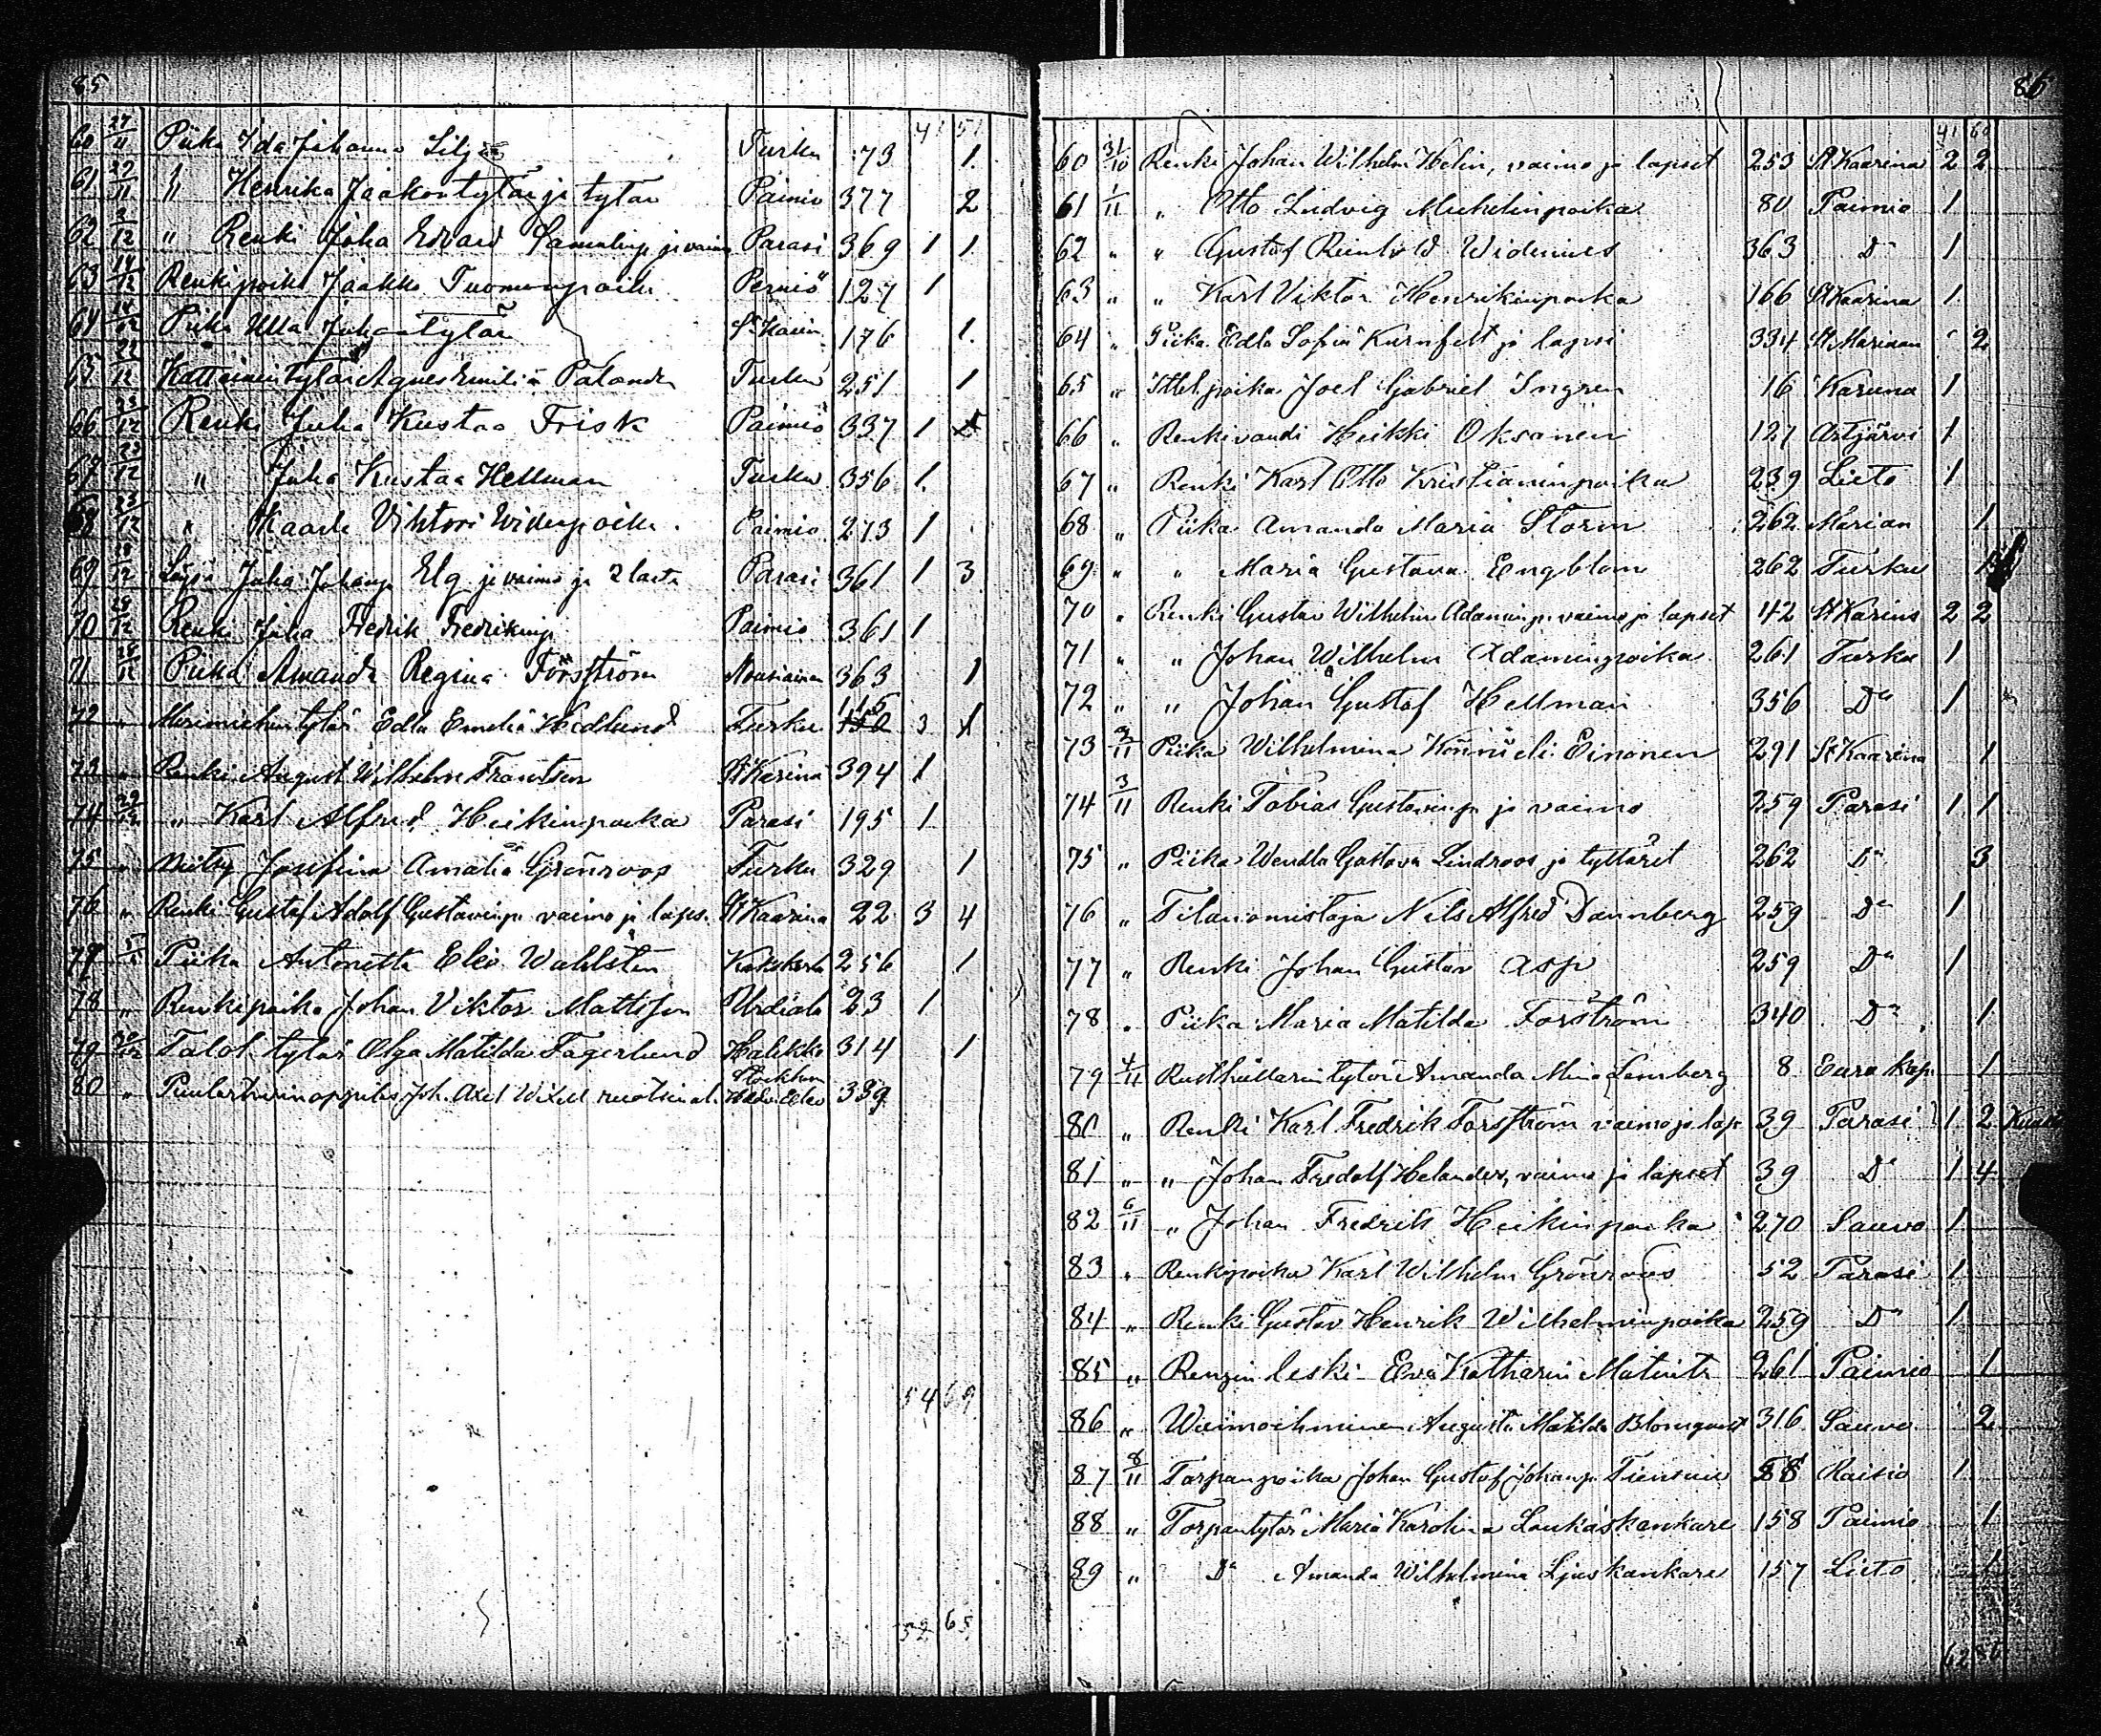 85
41 51
60 27/11 Piika Ida Johanna Lilja Turku 73 1
61 29/11 " Henrika Jaakontytär ja tytär Paimio 377 2
62 2/12 " Renki Juha Edvard ja vaimo Parasi 369 1 1
63 14/12 Renkipoika Jaakko Tuomanpoika Perniö 127 1
64 14/12 Piika Ulla Juhantytär St Karin 176 1
65 22/12 Agnes Emilia Palander Turku 251 1
66 23/12 Renki Juha Kustaa Frisk Paimio 337 1
67 23/12 " Juha Kustaa Hellman Turku 356 1
68 23/12 " Kaarle Vihtori Paimio 273 1
69 28/12 Juha Johanp Elg ja vaimo ja 2 lasta Parasi 361 1 3
70 28/12 Renki Juha Fredrik Fredrikinp Paimio 361 1
71 28/12 Piika Amanda Regina Forsström Nousiainen 363 1
72 " Merimiehentytär Edla Emelia Hedlund Turku 115 3 1
73 " Renki August Wilhelm Frantsen St Karina 394 1
74 29/12 " Karl Alfred Heikinpoika Parasi 195 1
75 " Josefina Amalia Grönroos Turku 329 1
76 " Renki Gustaf Adolf Gustavinp vaimo ja laps. St Kaarina 22 3 4
77 " Piika Antonetta Eleo Wahlsten Kakskerta 256 1
78 " Renkipoika Johan Viktor Mattsson Urdiala 23 1
79 30/12 Talol. tytär Olga Matilda Fagerlund Halikko 314 1
80 " Joh. Axel Wixell Stockholm 339
54 69
52 65
86
41 60
60 31/10 Renki Johan Wilhelm Helin, vaimo ja lapset 253 St Kaarina 2 2
61 1/11 " Otto Ludvig Mickelinpoika 80 Paimio 1
62 " " Gustaf Reinhold Widenius 363 Do 1
63 " " Karl Viktor Henrikinpoika 166 St Kaarina 1
64 " Piika Edla Sofia Kurnfelt ja lapsi 334 St Marian 2
65 " Ittel. poika Joel Gabriel Ingren 16 Karuna 1
66 " Renkivouti Heikki Oksanen 127 Artjärvi 1
67 " Renki Karl Otto Kristianinpoika 239 Lieto 1
68 " Piika Amanda Maria Storm 262 Marian 1
69 " " Maria Gustava Engblom 262 Turku 1
70 " Renki Gustav Wilhelm Adaminp. vaimo ja lapset 42 St Karins 2 2
71 " " Johan Wilhelm Adaminpoika 261 Turku 1
72 " " Johan Gustaf Hellman 356 Do 1
73 2/11 Piika Wilhelmina eli Einonen 291 St Kaarina 1
74 3/11 Renki Tobias Gustavinp ja vaimo 259 Parasi 1 1
75 " Piika Wendla Gustava Lindroos ja tyttäret 262 Do 3
76 " Tilanomistaja Nils Alfred Dannberg 259 Do 1
77 " Renki Johan Gustav Asp 259 Do 1
78 " Piika Maria Matilda Forström 340 Do 1
79 4/11 Rusthollarin tytär Amanda Mina Lemberg 8 Eura kap. 1
80 " Renki Karl Fredrik Forsström vaimo ja lap 39 Parasi 1 2
81 " " Johan Fredolf Helander, vaimo ja lapset 39 Do 1 4
82 6/11 " Johan Fredrik Heikinpoika 270 Sauvo 1
83 " Renkipoika Karl Wilhelm Grönroos 52 Parasi 1
84 " Renki Gustav Henrik Wilhelminpoika 259 Do 1
85 " Rengin leski Eva Katharin Matint. 261 Paimio 1
86 " Waimoihminen Augusta Matilda Blomqvist 316 Sauvo 2
87 8/11 Torpanpoika Johan Gustaf Johanp. Tiensuu 58 Raisio 1
88 " Torpantytär Maria Karolina Laukaskankare 158 Paimio 1
89 " Do Amanda Wilhelmina Ljuskankare 157 Lieto 1
62 56